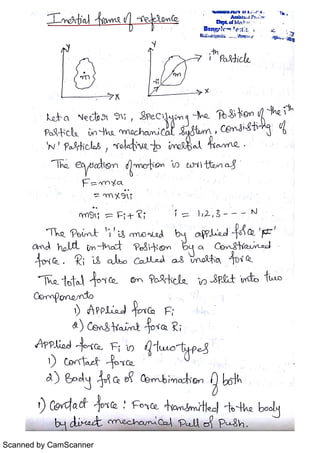 Inertial frame of reference
Assistant Professor
Dept. of Mech
Y
Y
ith Particle
m
m
X
X
Let a vector ri, specifying the Position of the ith
Particle in the mechanical system, consisting of
'N' Particles, relative to inertial frame.
The equation of motion is written as
F = m×a
= m×r̈i
mr̈i = Fi + Ri i = 1,2,3 --- N
The Point 'i' is moved by applied force 'F'
and held in that Position by a Constrained
force. Ri is also called as inertia force
The total force on Particle is split into two
Components
1) Applied force Fi
2) Constraint force Ri
Applied force Fi is of two types
1) Contact force
2) Body force or Combination of both
1) Contact force : Force transmitted to the body
by direct mechanical Pull or Push.
Scanned by CamScanner